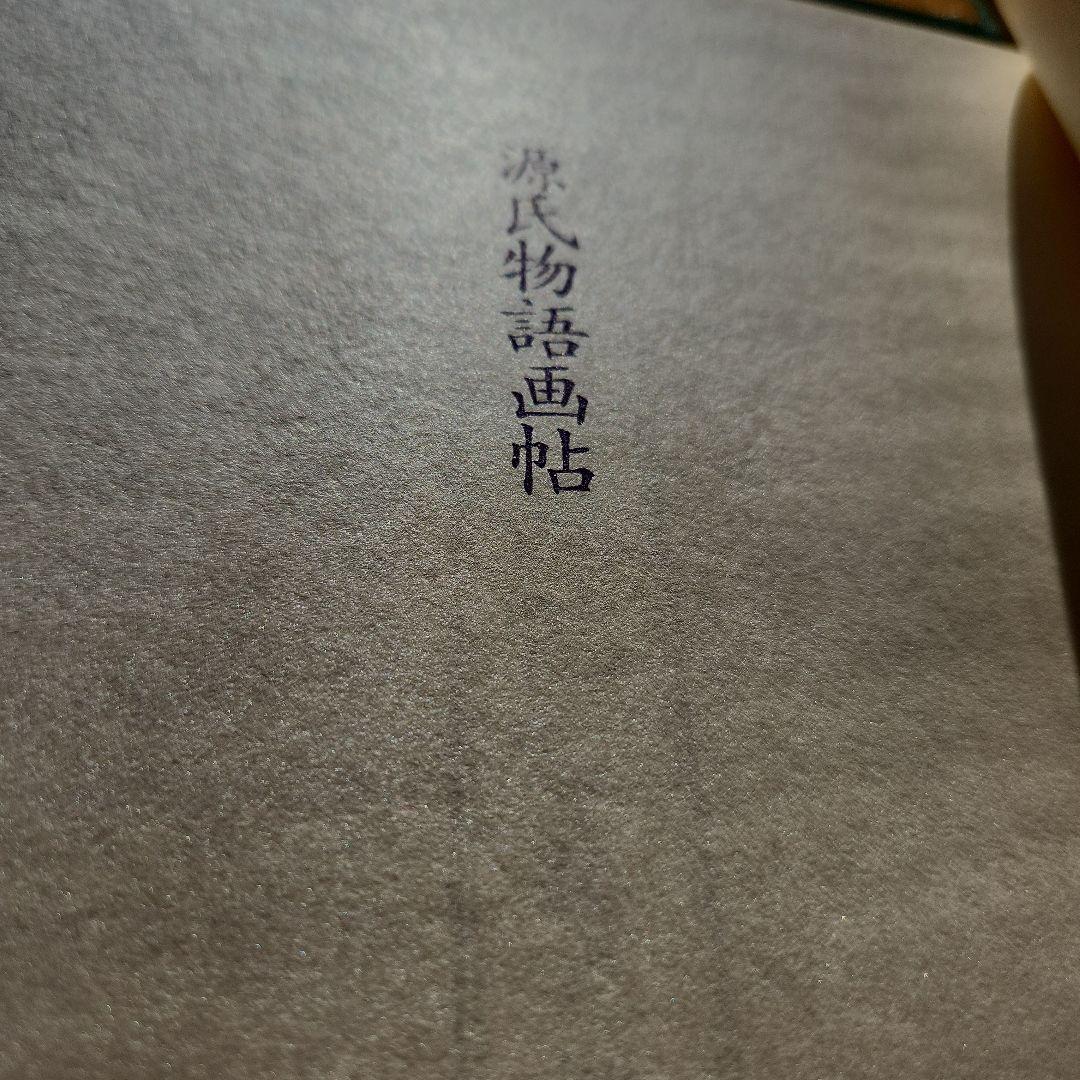 源氏物語画帖